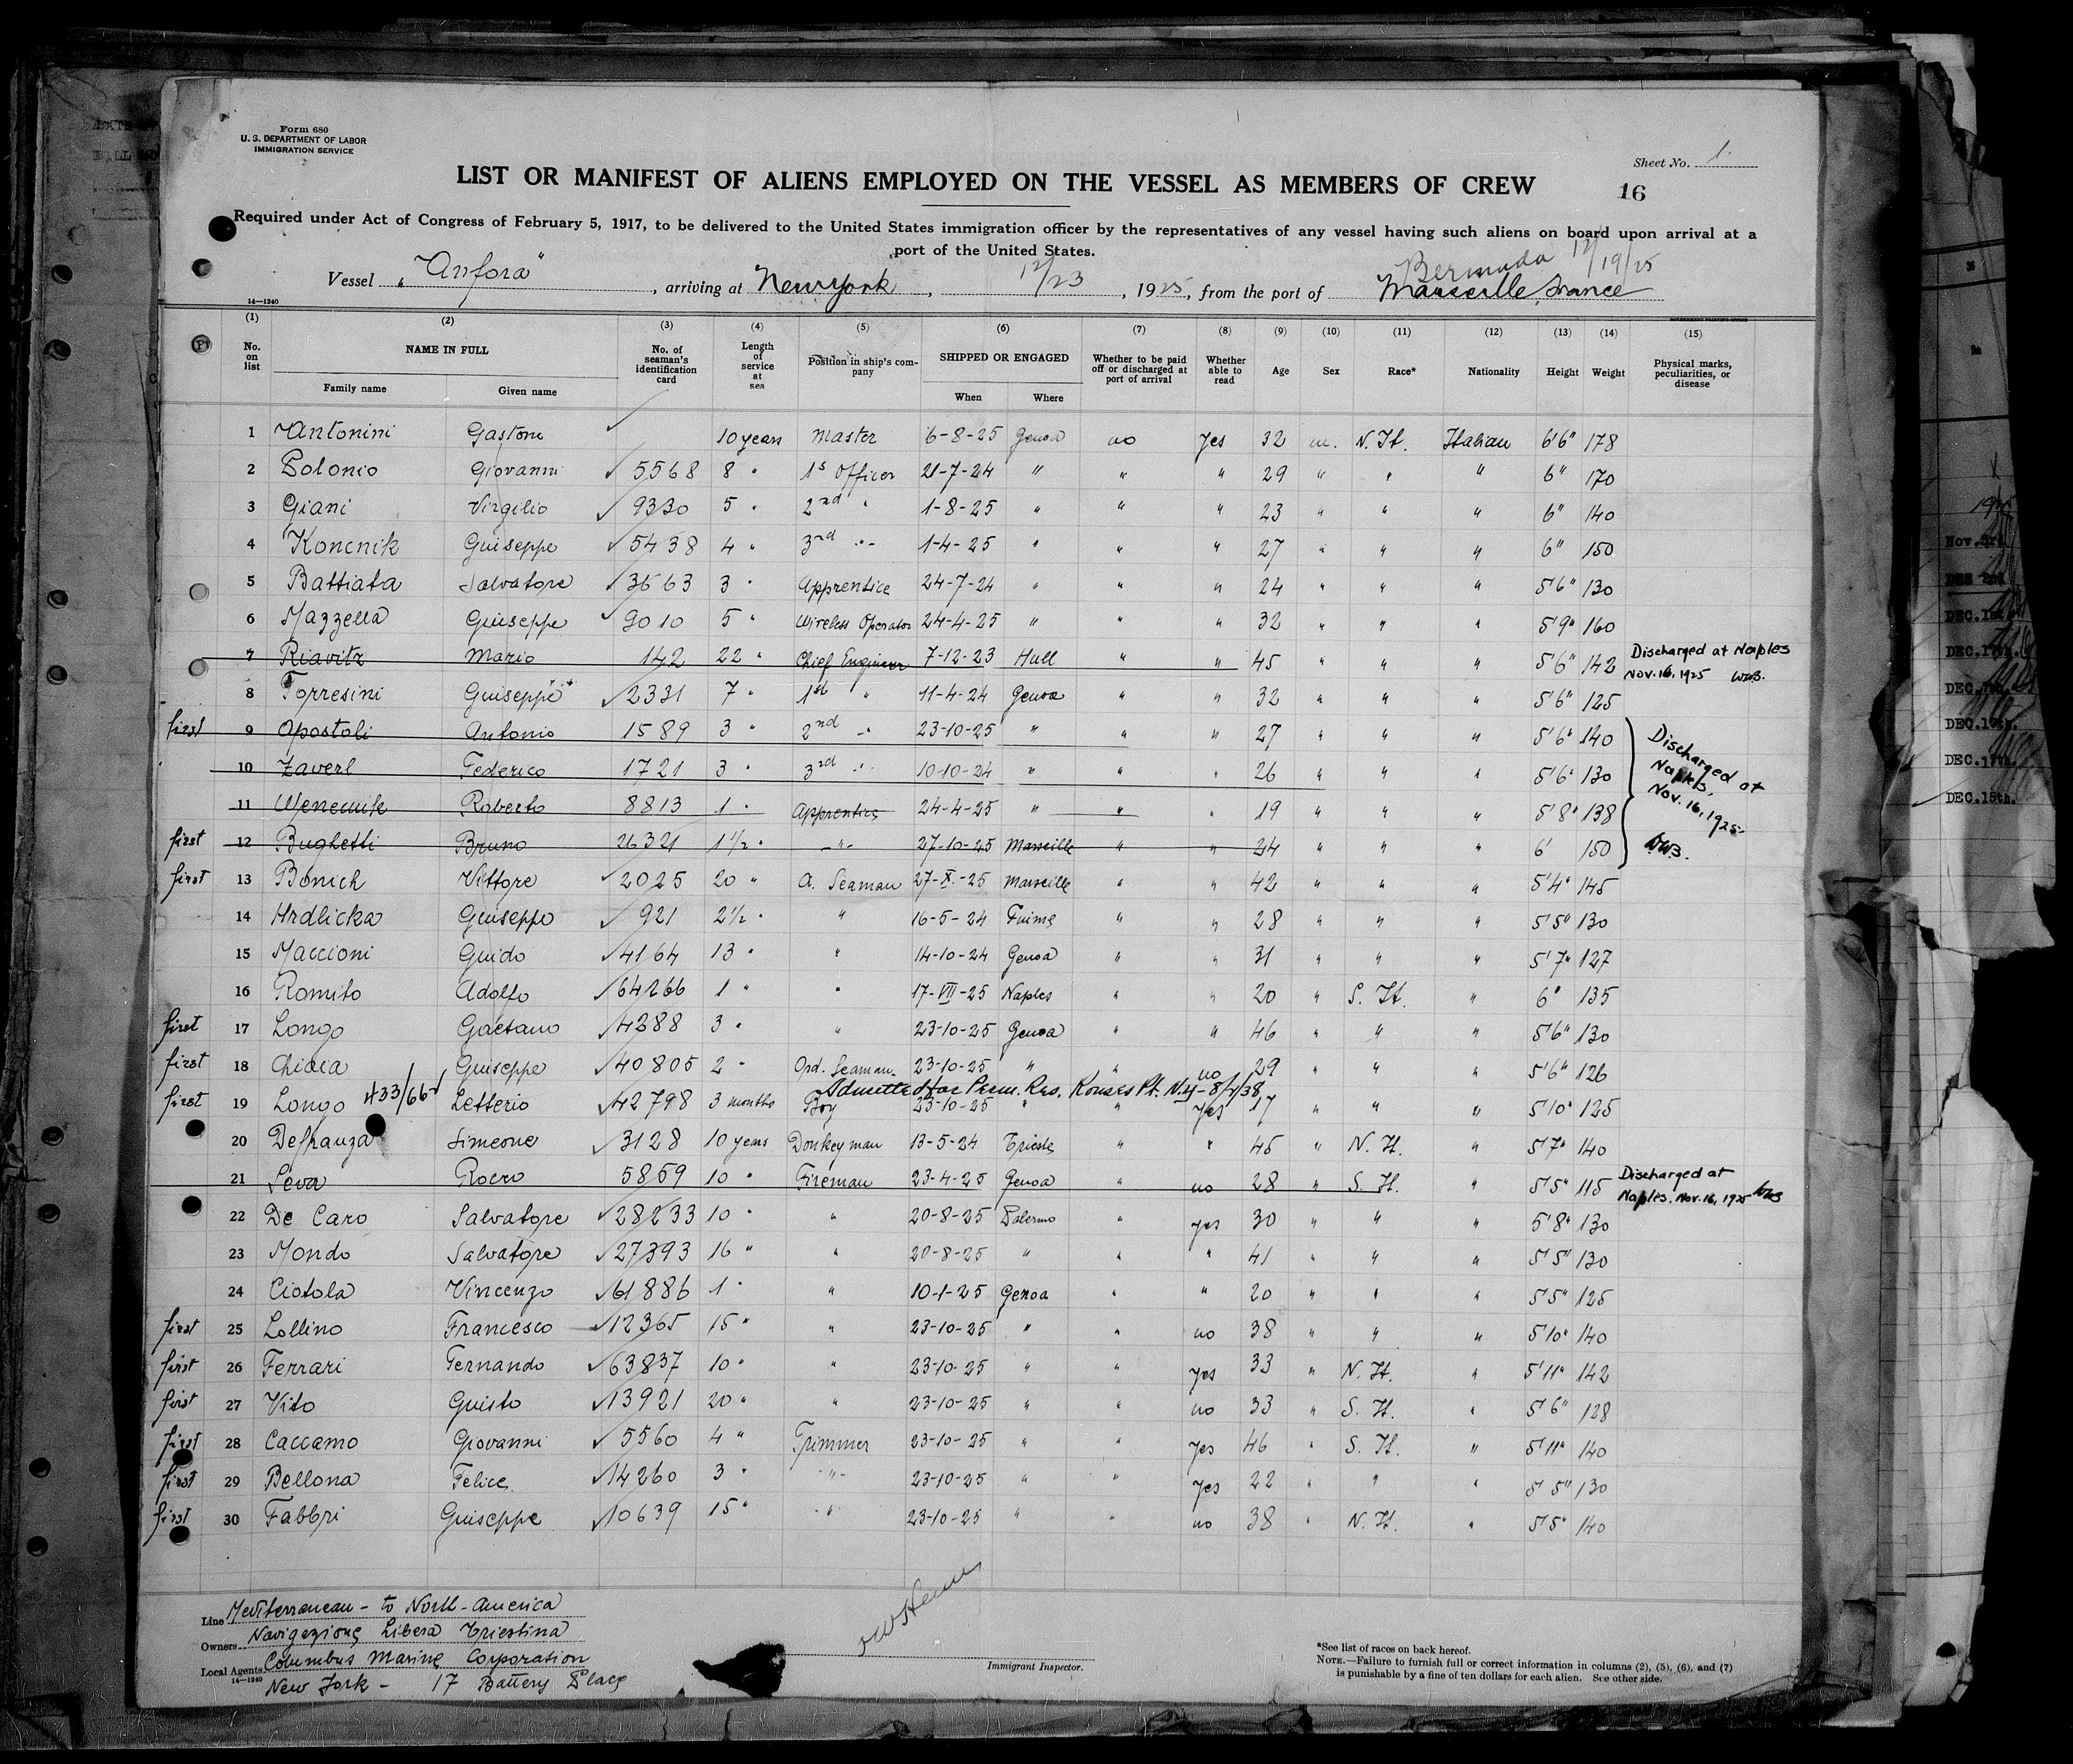 Form 680
U. S. DEPARTMENT OF LABOR
IMMIGRATION SERVICE
Sheet No. 1.
LIST OR MANIFEST OF ALIENS EMPLOYED ON THE VESSEL AS MEMBERS OF CREW
16
Required under Act of Congress of February 5, 1917, to be delivered to the United States immigration officer by the representatives of any vessel having such aliens on board upon arrival at a
port of the United States.
Bermuda 12/19/25
Vessel "Anfora", arriving at New York, 12/23, 1925, from the port of Marseille, France
14—1240
(1) (2) (3) (4) (5) (6) (7) (8) (9) (10) (11) (12) (13) (14) (15)
No. on list NAME IN FULL Family name Given name No. of seaman's identification card Length of service at sea Position in ship's company SHIPPED OR ENGAGED When Where Whether to be paid off or discharged at port of arrival Whether able to read Age Sex Race* Nationality Height Weight Physical marks, peculiarities, or disease
1 Antonini Gastone 10 years Master 6-8-25 Genoa no yes 32 m. N. It. Italian 6'6" 178
2 Polonio Giovanni 5568 8 " 1s Officer 21-7-24 " " " 29 " " " 6" 170
3 Giani Virgilio 9330 5 " 2nd " 1-8-25 " " " 23 " " " 6" 140
4 Koncnik Guiseppe 5438 4 " 3rd " 1-4-25 " " " 27 " " " 6" 150
5 Battiata Salvatore 3563 3 " Apprentice 24-7-24 " " " 24 " " " 5'6" 130
6 Mazzella Guiseppe 9010 5 " Wireless Operator 24-4-25 " " " 32 " " " 5'9" 160
7 Riavitz Mario 142 22 " Chief Engineer 7-12-23 Hull " " 45 " " " 5'6" 142 Discharged at Naples Nov. 16, 1925 WWB.
8 Torresini Guiseppe 2331 7 " 1st " 11-4-24 Genoa " " 32 " " " 5'6" 125
first 9 Apostoli Antonio 1589 3 " 2nd " 23-10-25 " " " 27 " " " 5'6" 140
10 Zaverl Federico 1721 3 " 3rd " 10-10-24 " " " 26 " " " 5'6" 130
11 Roberto 8813 1 " Apprentice 24-4-25 " " " 19 " " " 5'8" 138
first 12 Bughetti Bruno 26321 1½ " " 27-10-25 Marseille " " 24 " " " 6' 150
Discharged at Naples, Nov. 16, 1925 WWB.
first 13 Bonich Vittore 2025 20 " A. Seaman 27-X-25 Marseille " " 42 " " " 5'4" 145
14 Hrdlicka Guiseppe 921 2½ " " 16-5-24 Fuime " " 28 " " " 5'5" 130
15 Maccioni Guido 4164 13 " " 14-10-24 Genoa " " 31 " " " 5'7" 127
16 Romito Adolfo 64266 1 " " 17-VII-25 Naples " " 20 " S. It. " 6" 135
first 17 Longo Gaetano 4288 3 " " 23-10-25 Genoa " " 46 " " " 5'6" 130
first 18 Chiaia Guiseppe 40805 2 " Ord. Seaman 23-10-25 " " no 29 " " " 5'6" 126
Admitted for Perm. Res. Rouses Pt. N.Y - 8/2/38
first 19 Longo 433/662 Letterio 42798 3 months Boy 23-10-25 " " yes 17 " " " 5'10" 125
20 Defranza Simeone 3128 10 years Donkeyman 13-5-24 Trieste " " 45 " N. It. " 5'7" 140
21 Seva Rocco 5859 10 " Fireman 23-4-25 Genoa " no 28 " S. It. " 5'5" 115 Discharged at Naples. Nov. 16, 1925 WWB
22 De Caro Salvatore 28233 10 " " 20-8-25 Palermo " yes 30 " " " 5'8" 130
23 Mondo Salvatore 27393 16 " " 20-8-25 " " " 41 " " " 5'5" 130
24 Ciotola Vincenzo 61886 1 " " 10-1-25 Genoa " " 20 " " " 5'5" 125
first 25 Lollino Francesco 12365 15 " " 23-10-25 " " no 38 " " " 5'10" 140
first 26 Ferrari Fernando 63837 10 " " 23-10-25 " " yes 33 " N. It. " 5'11" 142
first 27 Vito Guisto 13921 20 " " 23-10-25 " " no 33 " S. It. " 5'6" 128
first 28 Caccamo Giovanni 5560 4 " Trimmer 23-10-25 " " yes 46 " S. It. " 5'11" 140
first 29 Bellona Felice 14260 3 " " 23-10-25 " " yes 22 " " " 5'5" 130
first 30 Fabbri Guiseppe 10639 15 " " 23-10-25 " " no 38 " N. It. " 5'5" 140
Line Mediterranean - to North-America
Owners Navigazione Libera Triestina
Local Agents Columbus Marine Corporation
14—1240
New York - 17 Battery Place
Immigrant Inspector.
*See list of races on back hereof.
NOTE.—Failure to furnish full or correct information in columns (2), (5), (6), and (7)
is punishable by a fine of ten dollars for each alien. See other side.
Nov. 3rd.
DEC. 17th.
DEC. 17th.
DEC. 15th.